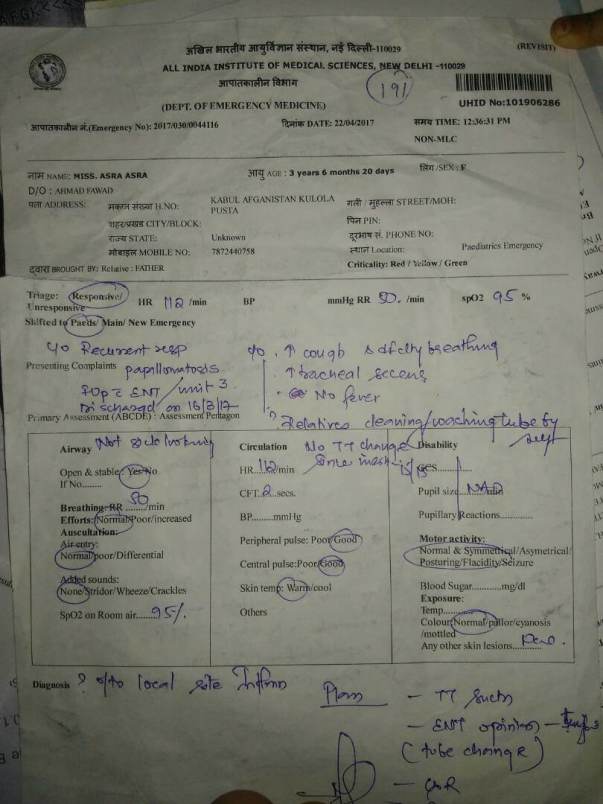 अखिल भारतीय आयुर्विज्ञान संस्थान, नई दिल्ली-110029
(REVISIT)
ALL INDIA INSTITUTE OF MEDICAL SCIENCES, NEW DELHI -110029
आपातकालीन विभाग
191
(DEPT. OF EMERGENCY MEDICINE)
UHID No:101906286
आपातकालीन नं.(Emergency No): 2017/030/0044116
दिनांक DATE: 22/04/2017
समय TIME: 12:36:31 PM
NON-MLC
नाम NAME: MISS. ASRA ASRA
आयु AGE : 3 years 6 months 20 days
लिंग /SEX : F
D/O : AHMAD FAWAD
पता ADDRESS: मकान संख्या H.NO: KABUL AFGANISTAN KULOLA PUSTA
गली / मुहल्ला STREET/MOH:
शहर/प्रखंड CITY/BLOCK:
पिन PIN:
राज्य STATE: Unknown
दूरभाष सं. PHONE NO:
मोबाईल MOBILE NO: 7872440758
स्थान Location: Paediatrics Emergency
द्वारा BROUGHT BY: Relative : FATHER
Criticality: Red / Yellow / Green
Triage: Responsive/ HR 112 /min BP mmHg RR 50. /min spO2 95 %
Unresponsive
Shifted to Paeds/ Main/ New Emergency
Recurrent resp
↑ cough difclty breathing
Presenting Complaints papillomatosis
↑ tracheal
ENT / unit 3
No fever
Discharged on
Primary Assessment (ABCDE) : Assessment Pentagon
? Relatives cleaning/ tube by self
Airway Not
Circulation No TT change
Disability
Open & stable: Yes/No
HR 112/min
GCS
If No........
CFT 2 secs.
Pupil size NAD
Breathing-RR 50 /min
BP.........mmHg
Pupillary Reactions
Efforts: Normal/Poor/increased
Auscultation:
Peripheral pulse: Poor/Good
Motor activity:
Air entry:
Normal & Symmetrical/Asymetrical
Normal/poor/Differential
Central pulse:Poor/Good
Posturing/Flacidity/Seizure
Added sounds:
Skin temp: Warm/cool
Blood Sugar...........mg/dl
None/Stridor/Wheeze/Crackles
Exposure:
SpO2 on Room air 95%.
Others
Temp
Colour:Normal/pallor/cyanosis
/mottled
Any other skin lesions
Diagnosis ? local site
Plan - TT
- ENT opinion
(tube change)